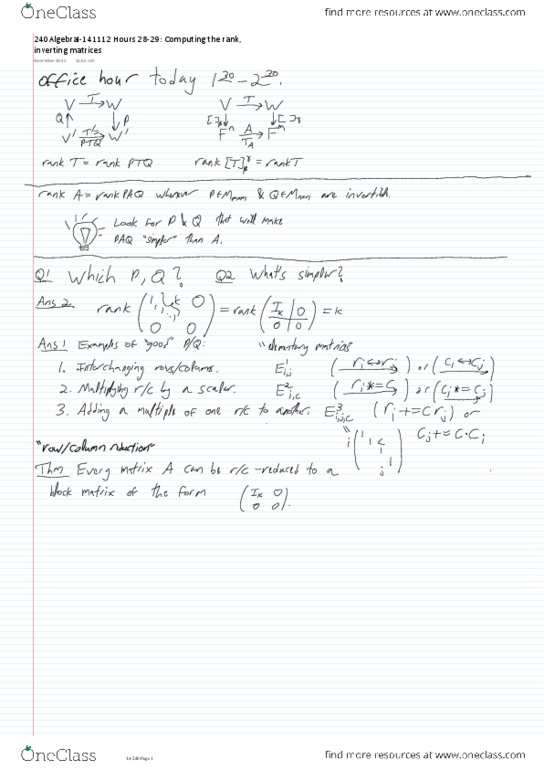 OneClass find more resources at www.oneclass.com
240 AlgebraI-141112 Hours 28-29: Computing the rank,
inverting matrices
office hour today 1³⁰-2²⁰.
V T→ W V T→ W
Q↑ ↓P
V' PTQ W' Fⁿ A→ Fᵐ
T_A
rank T = rank PTQ rank [T]ᵧᵦ = rank T
rank A = rank PAQ whenever P∈Mₘₓₘ & Q∈Mₙₓₙ are invertible.
Look for P & Q that will make
PAQ "simpler" than A.
Q1 Which P, Q? Q2 What's simpler?
Ans 2: rank (1 1 k 0 0 0) = rank (Iₖ 0 0 0) = k
Ans 1 Examples of "good" P/Q: "elementary matrices
1. Interchanging rows/columns. E¹ᵢ,ⱼ (rᵢ↔rⱼ) or (cᵢ↔cⱼ)
2. Multiplying r/c by a scalar. E²ᵢ,c (rᵢ*=c) or (cᵢ*=c)
3. Adding a multiple of one r/c to another. E³ᵢ,ⱼ,c (rᵢ+=c rⱼ) or
cⱼ+=c·cᵢ
"row/column reduction"
Thm Every matrix A can be r/c-reduced to a
block matrix of the form (Iₖ 0 0 0).
14-240 Page 1
OneClass find more resources at www.oneclass.com